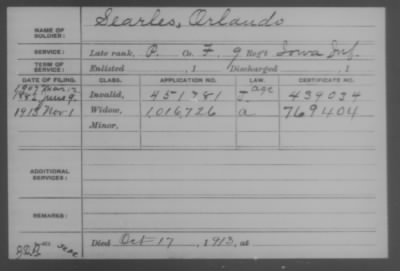 Searles, Orlando
NAME OF SOLDIER:
SERVICE: Late rank, P. Co. F, 9 Reg't Iowa Inf.
TERM OF SERVICE: Enlisted , 1 Discharged , 1
DATE OF FILING. CLASS. APPLICATION NO. LAW. CERTIFICATE NO.
1907 Mar 12 age
1882 June 9. Invalid, 451781 J. 434034
1913 Nov 1 Widow, 1,016,726 a 769404
Minor,
ADDITIONAL SERVICES:
REMARKS:
Died Oct 17, 1913, at